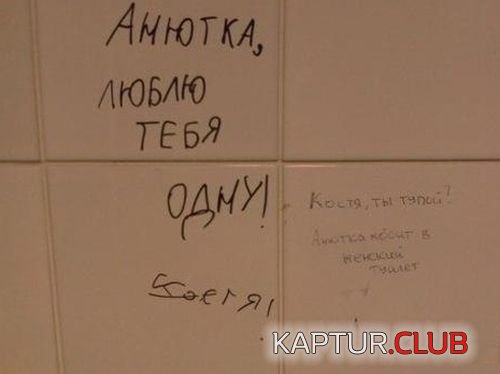 Анютка,
люблю
тебя
одну!
Костя,
Костя, ты тупой?
Анютка ходит в
женский
туалет
KAPTUR.CLUB